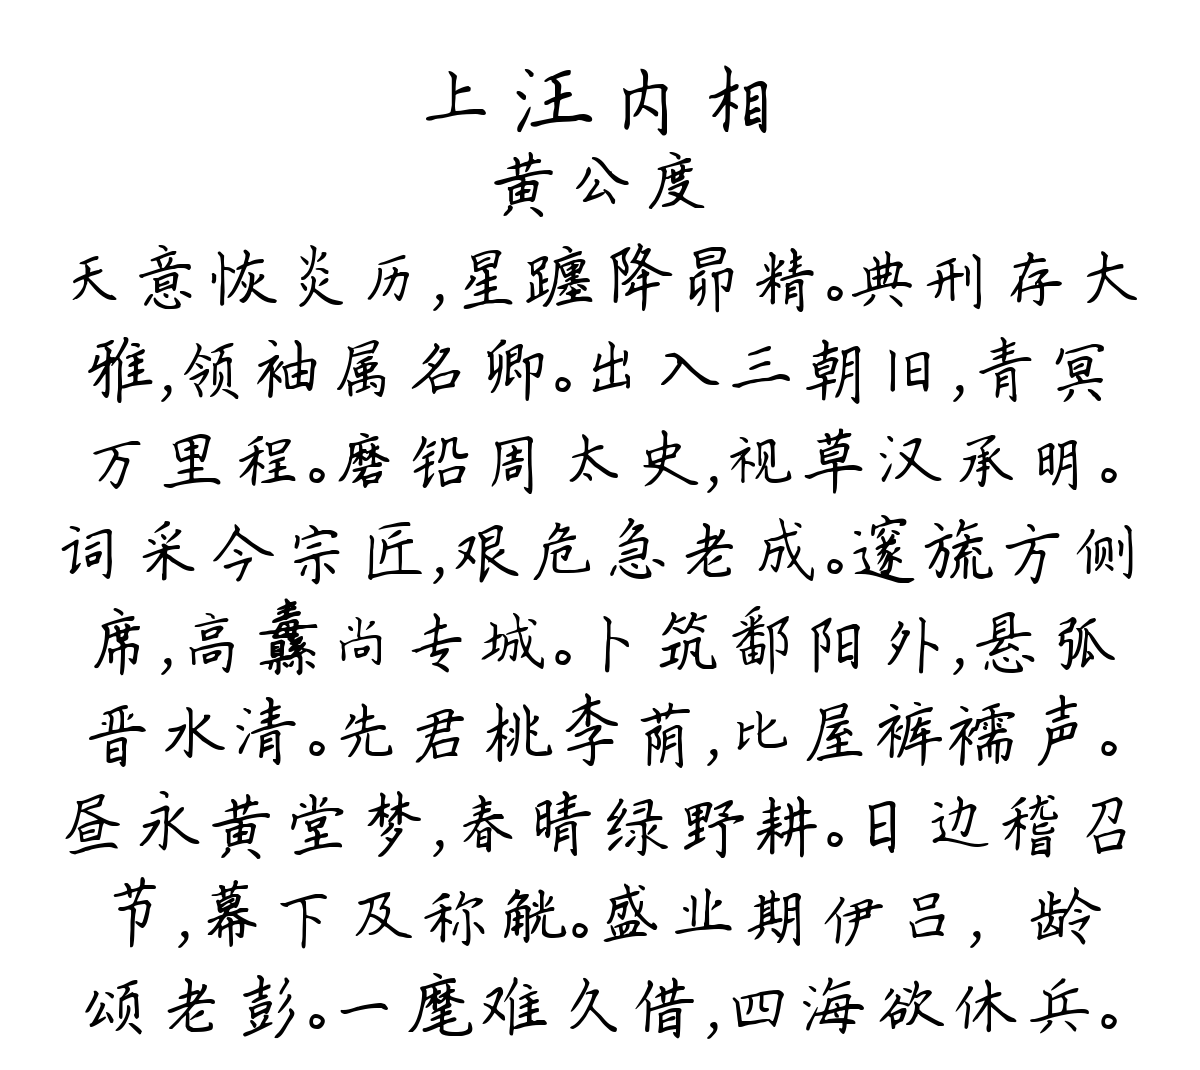 上汪内相
黄公度
天意恢炎历,星躔降昴精。典刑存大
雅,领袖属名卿。出入三朝旧,青冥
万里程。磨铅周太史,视草汉承明。
词采今宗匠,艰危急老成。邃旒方侧
席,高纛尚专城。卜筑鄱阳外,悬弧
晋水清。先君桃李荫,比屋裤襦声。
昼永黄堂梦,春晴绿野耕。日边稽召
节,幕下及称觥。盛业期伊吕,龄
颂老彭。一麾难久借,四海欲休兵。